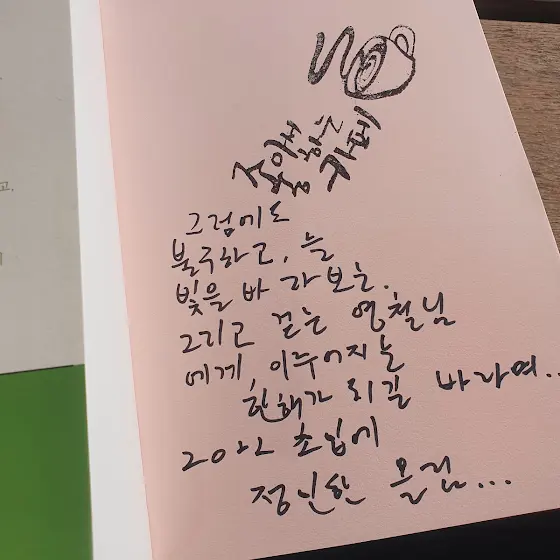 좋아서
하는
카페
그럼에도
불구하고, 늘
빛을 바라보는.
그리고 걷는 영철님
에게, 이루어지는
한해가 되길 바라며..
2022 초입에
정인한 올림...
고,